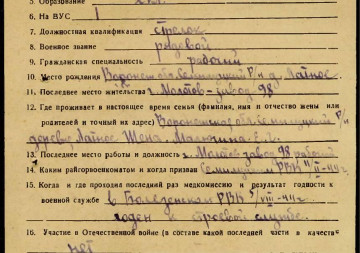 5. Образование 2 кл.
6. На ВУС 1
7. Должностная квалификация стрелок
8. Военное звание рядовой
9. Гражданская специальность рабочий
10. Место рождения Воронеж обл. Семилукский Р/н д. Латное
11. Последнее место жительства г. Молотов - завод 98
12. Где проживает в настоящее время семья (фамилия, имя и отчество жены или
родителей и точный их адрес) Воронежская обл. Семилукский Р/н
деревня Латное Жена
13. Последнее место работы и должность г. Молотов завод 98 рабочий
14. Каким райгорвоенкоматом и когда призван Семилукский РВК II-44 г.
15. Когда и где проходил последний раз медкомиссию и результат годности к
военной службе в РВК VIII-44 г.
годен к строевой службе.
16. Участие в Отечественной войне (в составе какой последней части в качестве
нет